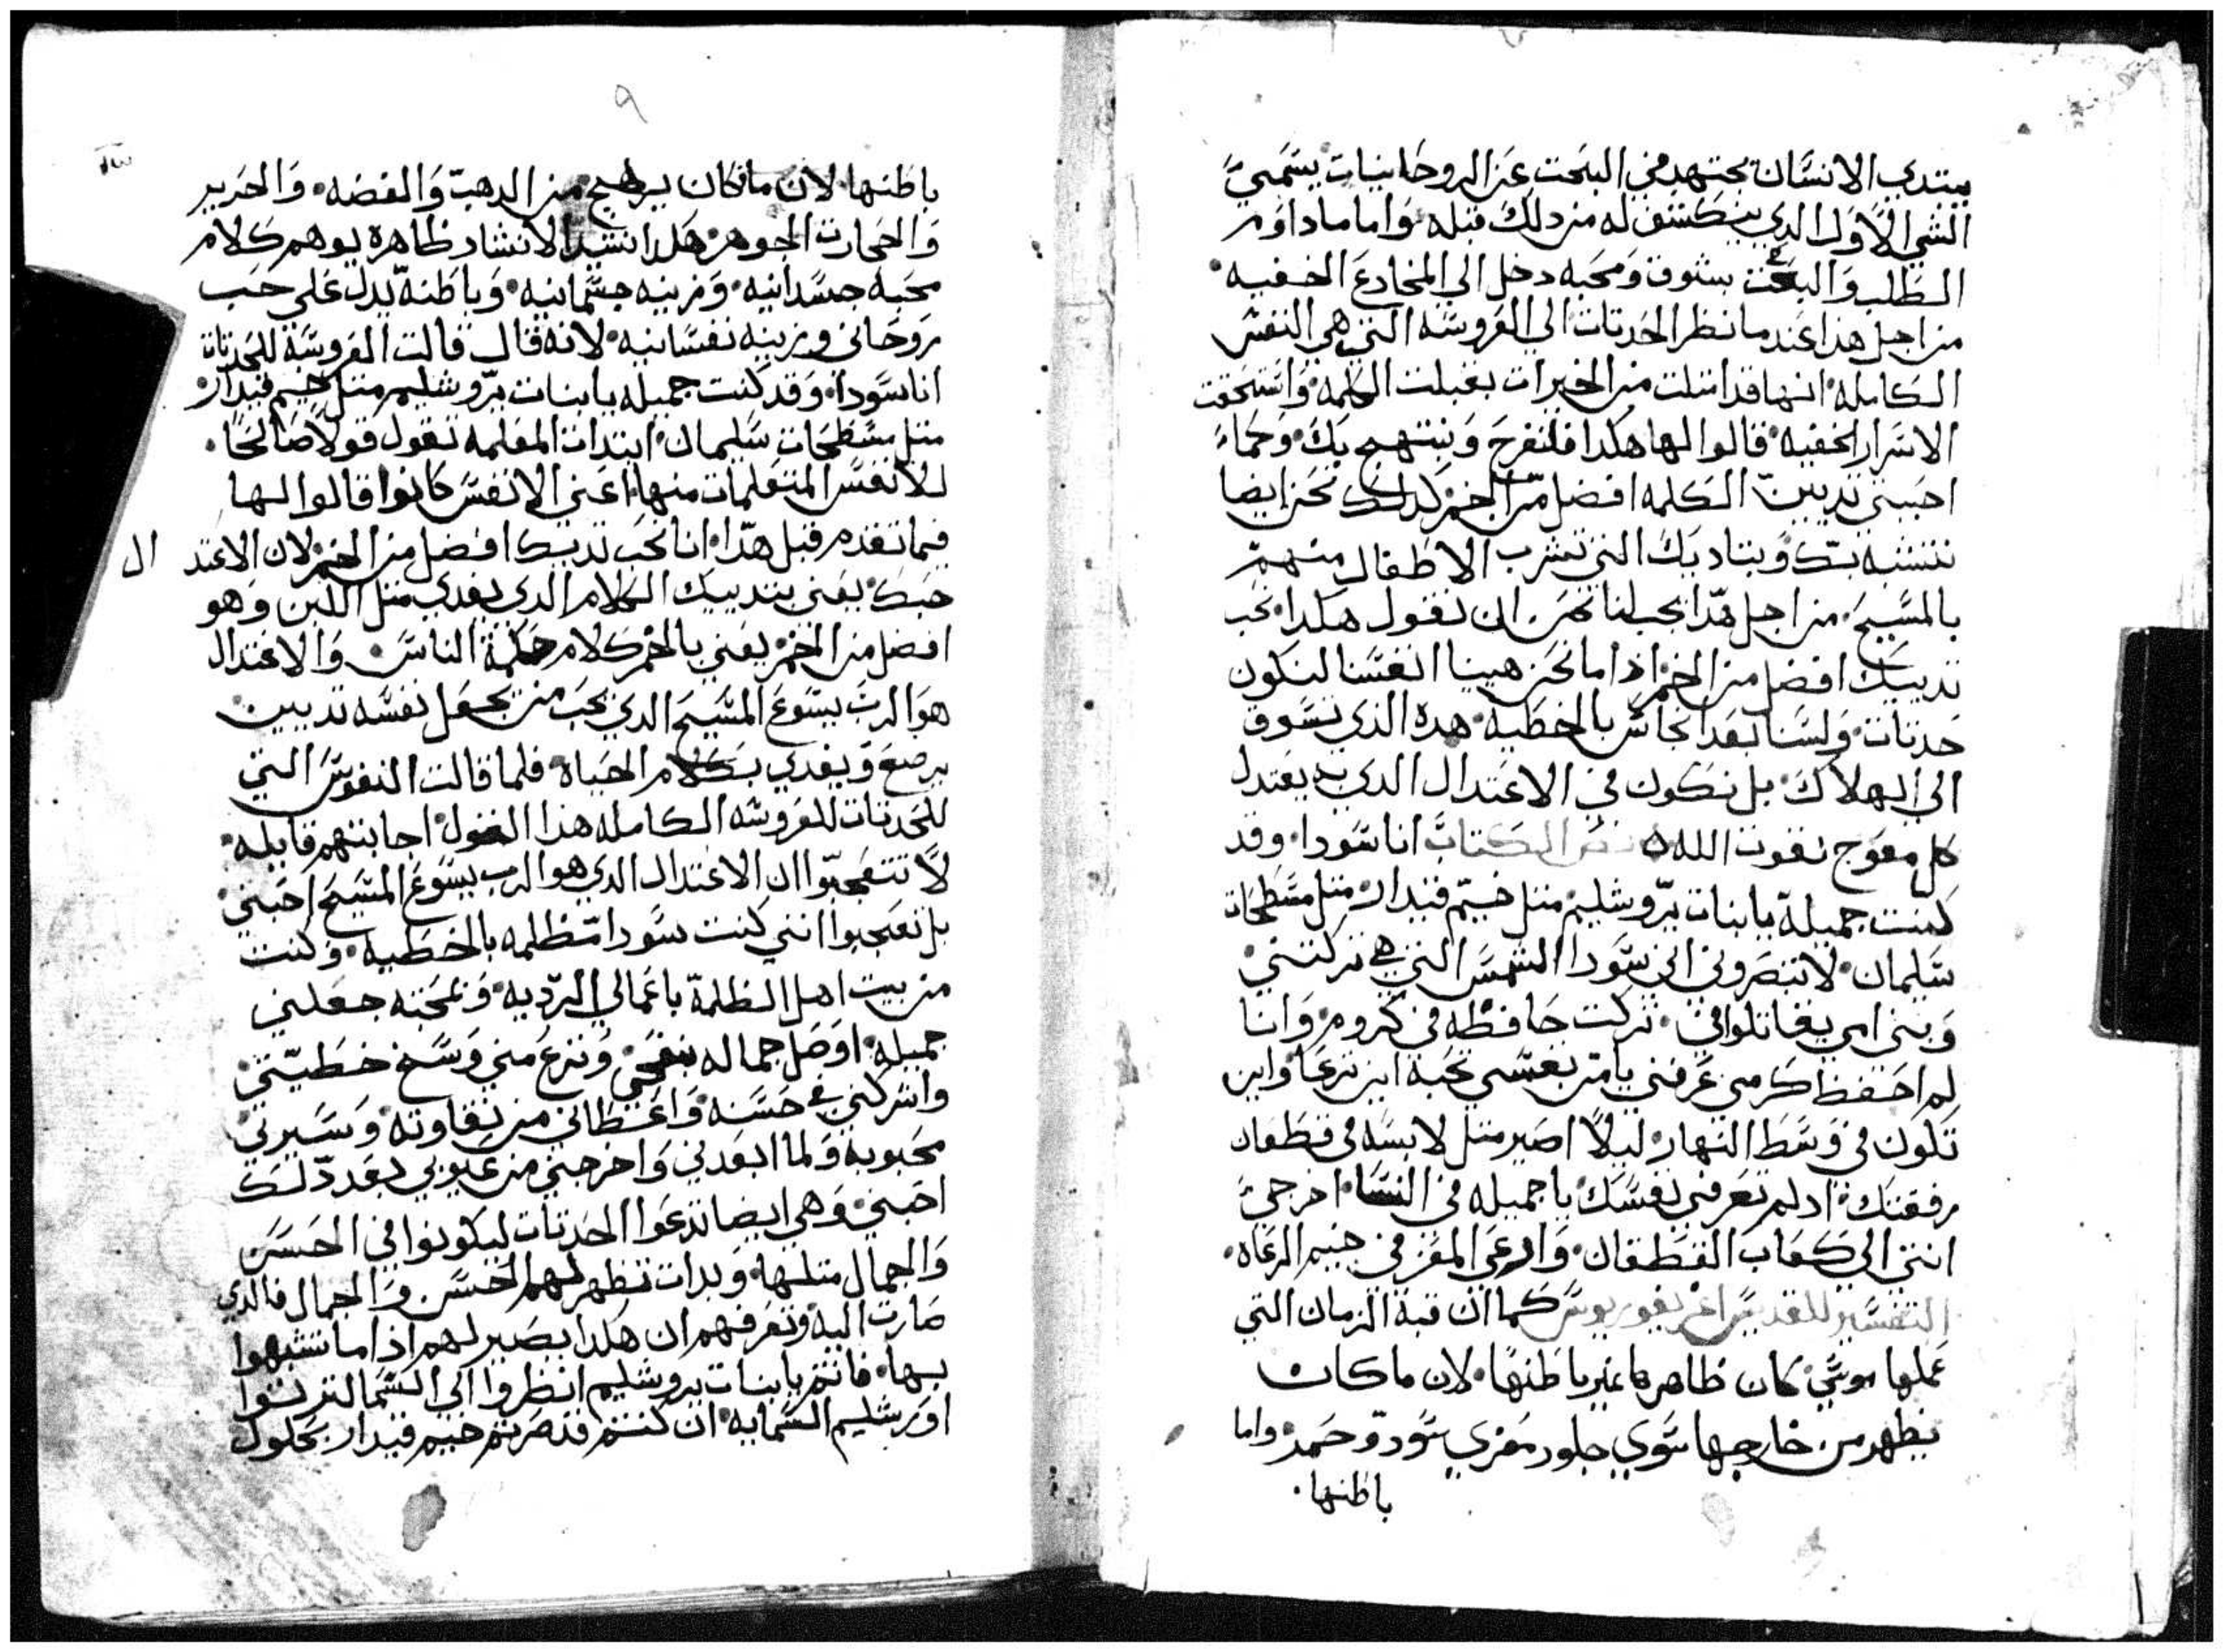 يبتدي الانسان يجتهد في البحت عن الروحانيات يسمي
الشي الاول الدي ينكشف له من دلك قبله واما ماداوم
الطلب والبحت بشوق ومحبه دخل الي المخادع الخفيه
من اجل هذا عند ما نظر الحدتات الي العروسه التي هي النفس
الكامله انها قد امتلت من الخيرات بقبلت الكلمه واستحقت
الاسرار الخفيه قالوا لها هكدا فلنفرح ونبتهج بك وكما
احببتي تديين الكلمه افضل من الخمر كدلك نحن ايضا
نتشبه بك وبتاديك التي تشرب الاطفال منهم
بالمسيح من اجل هدا يجب لنا نحن ان نقول هكدا نحب
تدييك افضل من الخمر اذا ما نحن هيينا انفسنا لنكون
حدتات ولسنا بعد انجاس بالخطيه هده الذي تسوق
الي الهلاك بل نكون في الاعتدال الدي به يعتدل
كل معوج بقوت الله نص الكتاب انا سودا وقد
كنت جميلة يا بنات يروشليم متل خيم قيدار متل مسطحات
سليمان لا تبصروني اني سودا الشمس التي هي تركتني
وبني امي يقاتلوني تركت حافظه في كروم وانا
لم احتفظ كرمي عرفني يا من بعسي نحبه اين ترعا واين
تكون في وسط النهار ليلا اصير متل لابسه في قطعان
رفقتك اد لم تعرفي نفسك يا جميله في النسا اخرجي
انتي الي كعاب القطعان وارعي المعز في خيم الرعاه
التفسير للقديس اغريغوريوس كما ان قبة الزمان التي
عملها موسي كان ظاهرها غير باطنها لان ما كان
يظهر من خارجها سوي جلود معزي سود وحمر واما
باطنها
٩
باطنها لان ما كان يرهج من الدهب والفضه والحرير
والحجارت الجوهر هكدا نشيد الانشاد ظاهره يوهم كلام
محبه جسدانيه وزينه جسمانيه وباطنه يدل علي حب
روحاني وزينه نفسانيه لانه قال قالت العروسة للحدتات
انا سودا وقد كنت جميله يا بنات يروشليم متل خيم قيدار
متل مسطحات سليمان ابتدات المعلمه تقول قولا صالحا
للانفس المتعلمات منها اعني الانفس كانوا قالوا لها
فيما تقدم قبل هدا انا نحب تدييك افضل من الخمر لان الاعتد ال
حبك يعني بتدييك الكلام الدي يغدي متل اللبن وهو
افضل من الخمر يعني بالخمر كلام حكمة الناس والاعتدال
هو الرب يسوع المسيح الدي يحب من يجعل نفسه تديين
يرضع ويغدي بكلام الحياه فلما قالت النفوس التي
للحدتات للعروسه الكامله هذا القول اجابتهم قايله
لا تتعجبوا ان الاعتدال الدي هو الرب يسوع المسيح احبني
بل تعجبوا انني كنت سودا مظلمه بالخطيه وكنت
من بيت اهل الظلمة باعمالي الرديه وبمحبته جعلني
جميله اوصل جماله وبنزع مني وسخ خطيتي
واشركني في حسنه واعطاني من نقاوته وسيرني
محبوبه ولما ابعدني واخرجني من عيوبي بعد دلك
احبني وهي ايضا تدعوا الحدتات ليكونوا في الحسن
والجمال متلها وبدات تظهر لهم الحسن والجمال فالدي
صارت اليه وتعرفهم ان هكدا يصير لهم اذا ما تشبهوا
بها فانتم يا بنات يروشليم انظروا الي السما لتريتوا
اورشليم السمايه ان كنتم قد صرتم خيم قيدار بحلول